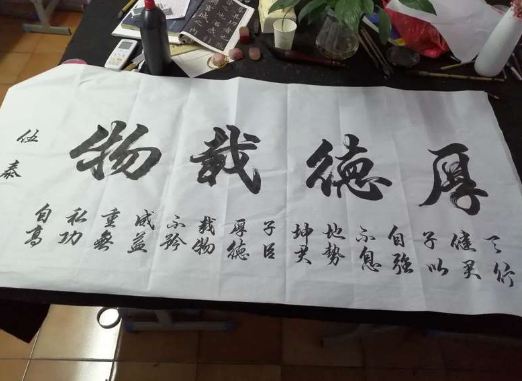 厚德載物
天行
健君
子以
自強
不息
地勢
坤君
子以
厚德
載物
不矜
威益
重無
私功
自高
伍泰